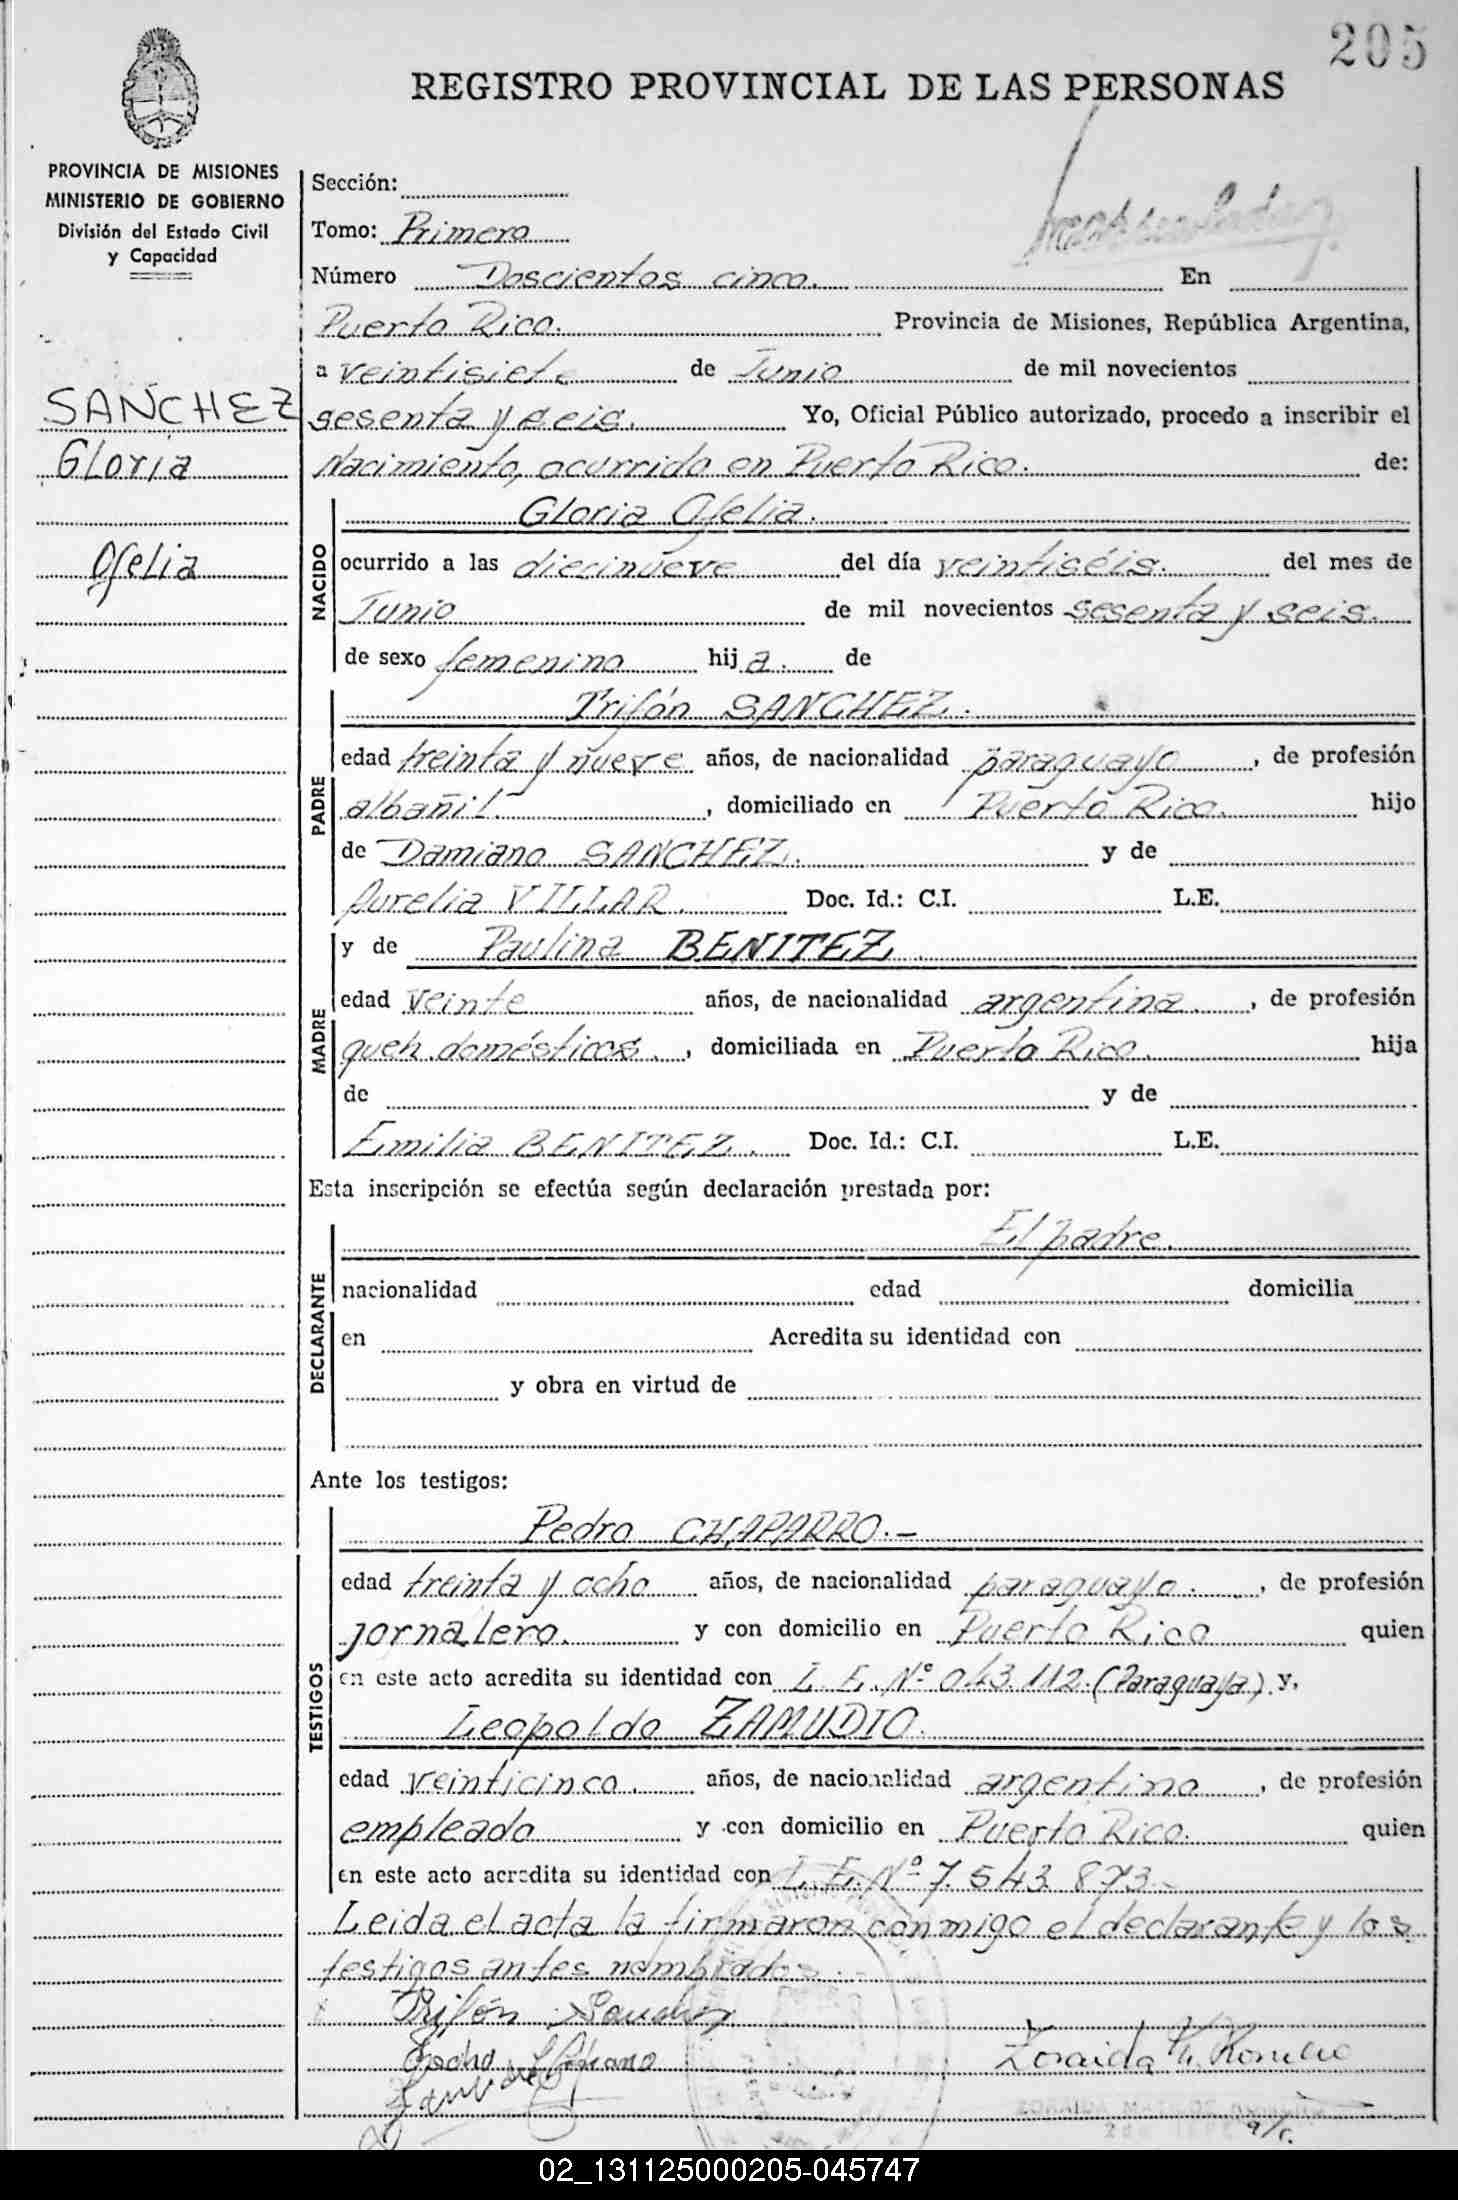 205
REGISTRO PROVINCIAL DE LAS PERSONAS
PROVINCIA DE MISIONES
MINISTERIO DE GOBIERNO
División del Estado Civil
y Capacidad
SANCHEZ
Gloria
Ofelia
Sección:
Tomo: Primero
Número Doscientos cinco. En
Puerto Rico. Provincia de Misiones, República Argentina,
a veintisiete de Junio de mil novecientos
sesenta y seis. Yo, Oficial Público autorizado, procedo a inscribir el
Nacimiento, ocurrido en Puerto Rico. de:
NACIDO
Gloria Ofelia.
ocurrido a las diecinueve del día veintiséis. del mes de
Junio de mil novecientos sesenta y seis.
de sexo femenino hij a. de
PADRE
Trifón SANCHEZ.
edad treinta y nueve años, de nacionalidad paraguayo, de profesión
albañil., domiciliado en Puerto Rico. hijo
de Damiano SANCHEZ. y de
Aurelia VILLAR. Doc. Id.: C.I. L.E.
MADRE
y de Paulina BENITEZ.
edad veinte años, de nacionalidad argentina., de profesión
queh. domésticos., domiciliada en Puerto Rico. hija
de y de
Emilia BENITEZ. Doc. Id.: C.I. L.E.
Esta inscripción se efectúa según declaración prestada por:
DECLARANTE
El padre.
nacionalidad edad domicilia
en Acredita su identidad con
y obra en virtud de
Ante los testigos:
TESTIGOS
Pedro CHAPARRO.-
edad treinta y ocho años, de nacionalidad paraguayo., de profesión
jornalero. y con domicilio en Puerto Rico quien
en este acto acredita su identidad con L.E. Nº 043.112. (Paraguaya) y,
Leopoldo ZAMUDIO.
edad veinticinco. años, de nacionalidad argentino, de profesión
empleado y con domicilio en Puerto Rico. quien
en este acto acredita su identidad con L.E. Nº 7.543.873.-
Leida el acta la firmaron conmigo el declarante y los
testigos antes nombrados.-
Trifón Sanchez
Zoraida
a/c.
02_131125000205-045747